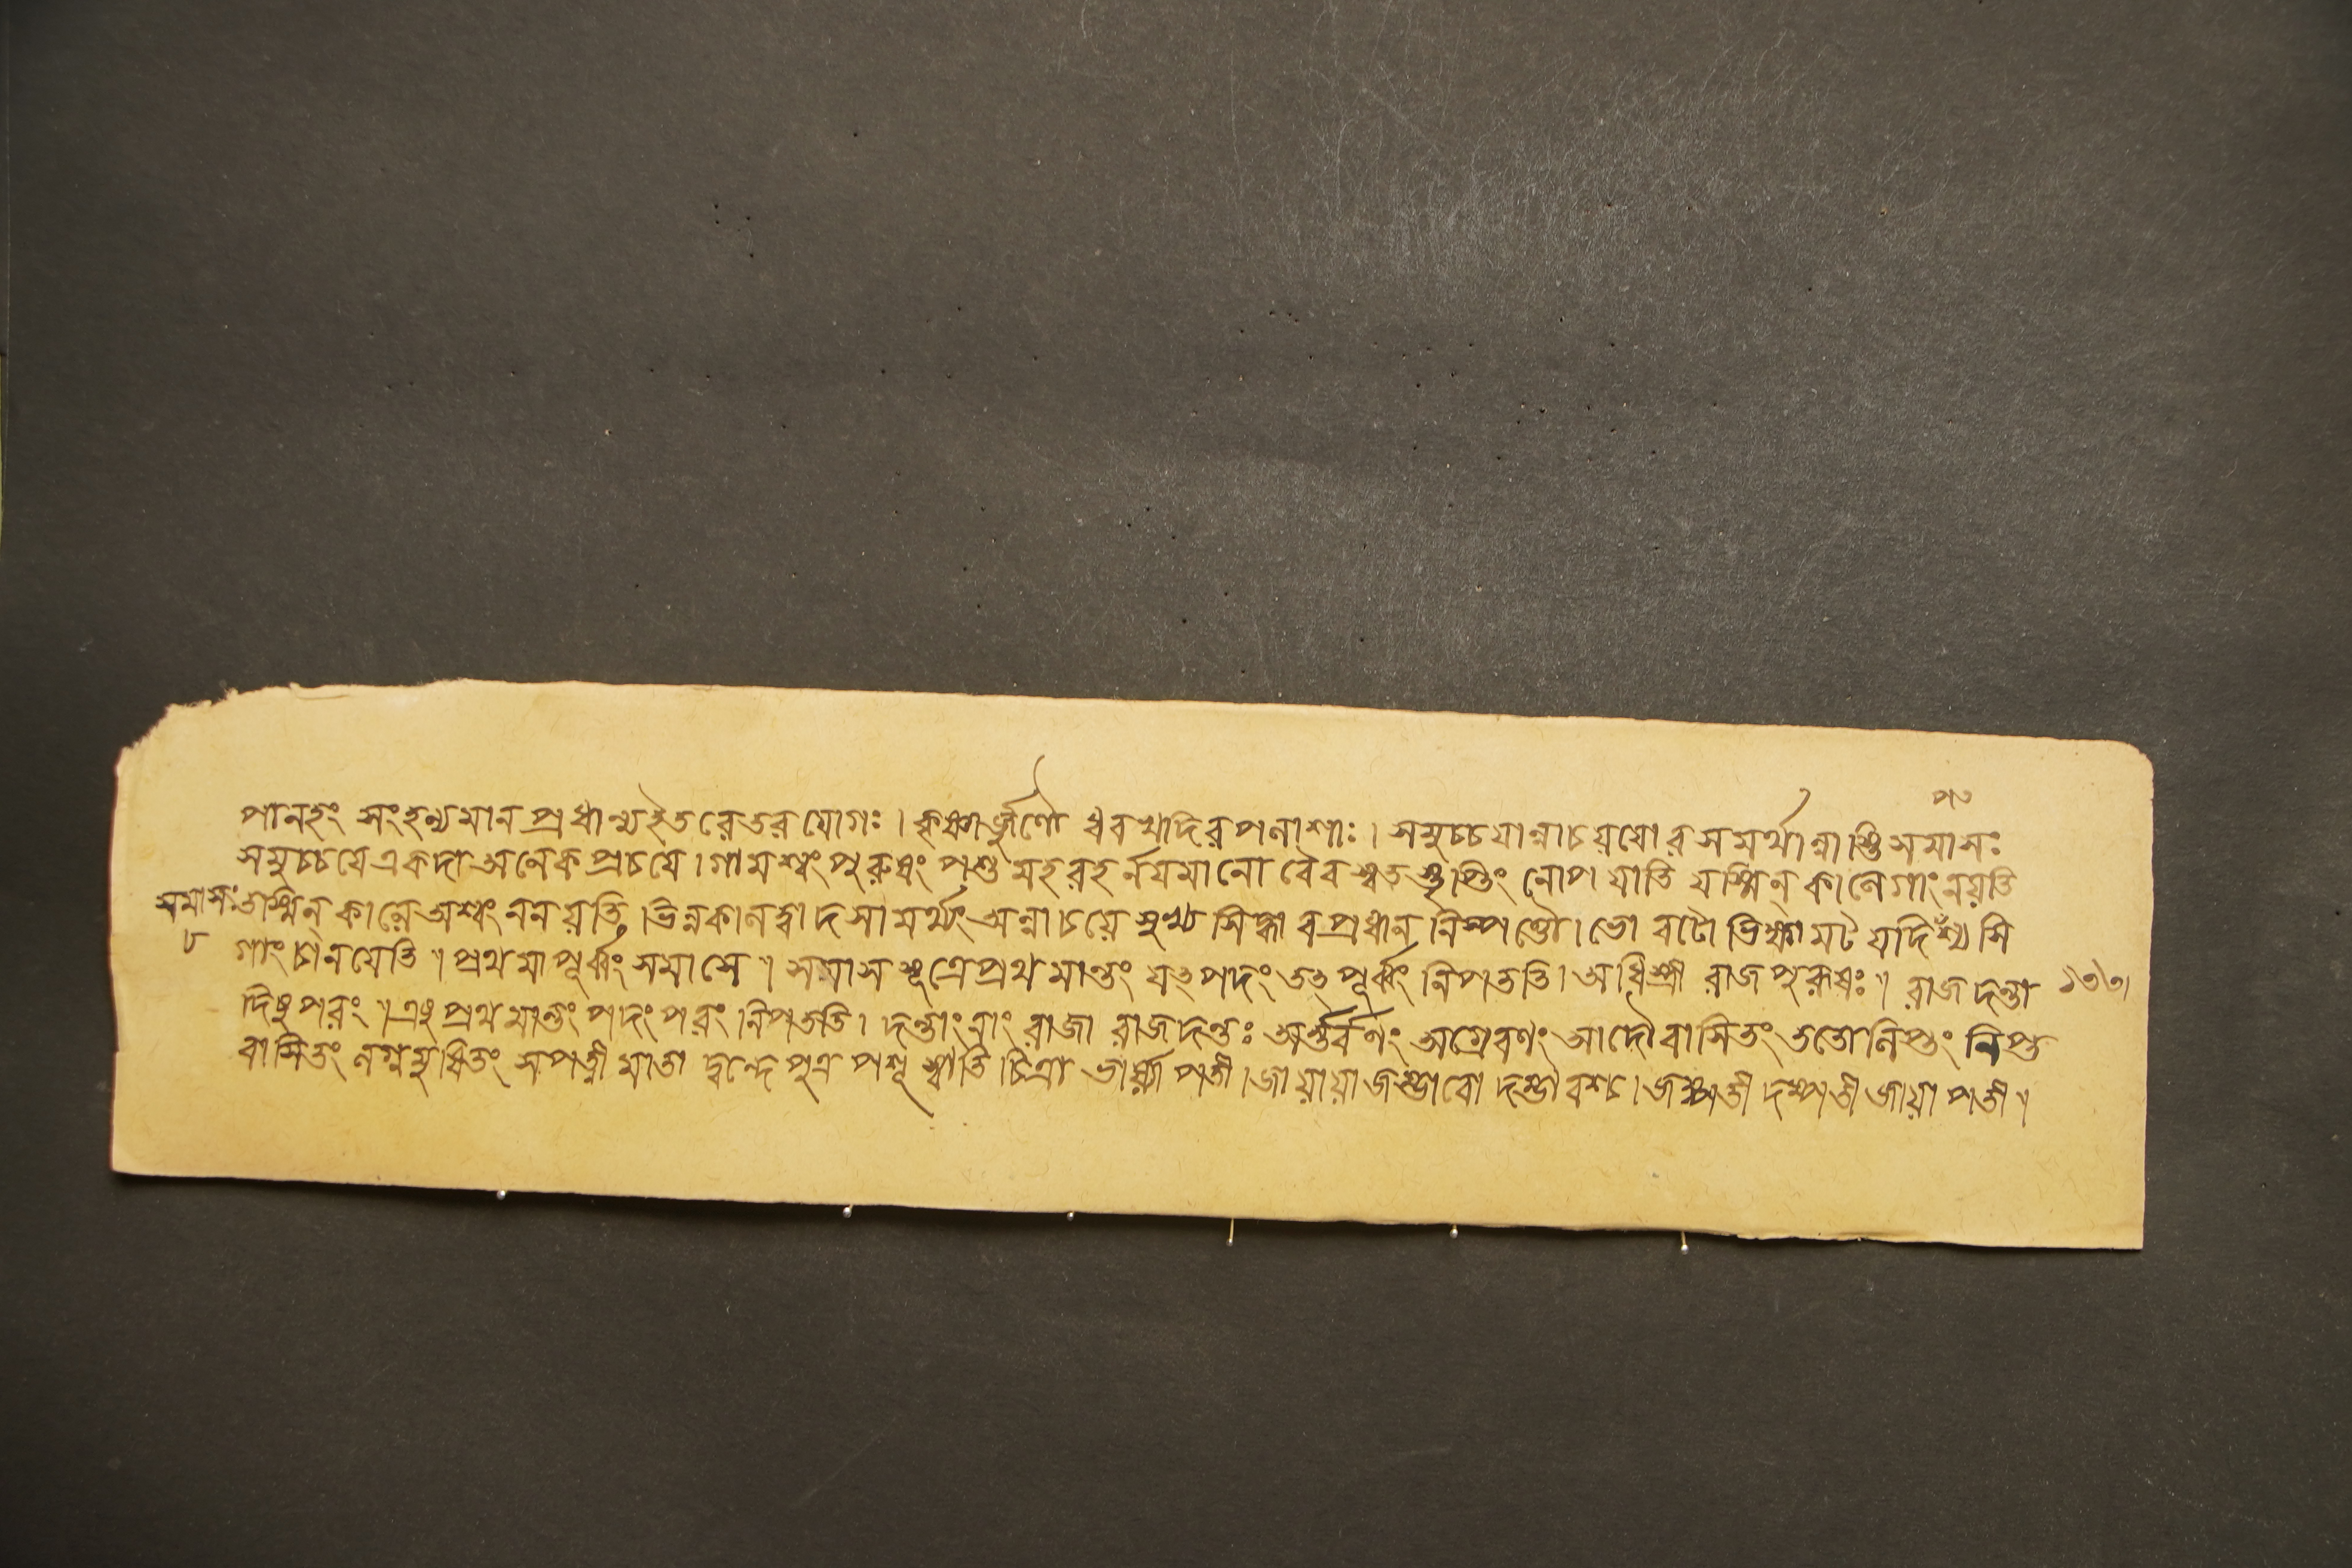 পাণ
পানহং সংহন্যমানপ্রধান্যইতরেতরযোগঃ। কৃষ্ণার্জ্জুণৌ ধবখদিরপলাশাঃ। সমুচ্চয়ান্বাচয়য়োরসমর্থান্নাস্তিসমাসঃ
সমুচ্চযেএকদাঅনেকপ্রচযে। গামশ্বংপুরুষংপশুমহরহর্নযমানো বৈবশ্বতস্তৃপ্তিং নোপযাতি যস্মিন্ কালেগাং নয়তি
সমাসঃ তস্মিন্ কালেঅশ্বং ননয়তি, ভিন্নকালত্বাদসামর্থ্যং অন্বাচয়ে মুখ্য সিদ্ধাবপ্রধান নিস্পত্তৌ। ভো বটো ভিক্ষামট যদিপঁশ্যসি
৮ গাংচানযেতি॥ প্রথমাপূর্ব্বং সমাসে॥ সমাসসূত্রেপ্রথমান্তং যৎপদং তৎপূর্ব্বং নিপততি। অধিস্ত্রী রাজপুরুষঃ॥ রাজদন্তা
দিষু পরং॥ এষু প্রথমান্তং পদং পরং নিপততি। দন্তানাং রাজা রাজদন্তঃ অর্ন্তর্বণং অগ্রেবণং আদৌবাসিতং ততোলিপ্তং লিপ্ত
বাসিতং নগ্নমুষিতং সপত্নীমাতা দ্বন্দে পুত্র পশূ স্বাতি চিত্রা ভার্য্যাপতী। জায়ায়া জম্ভাবো দম্ভাবশ্চ। জম্পতী দম্পতী জায়াপতী॥